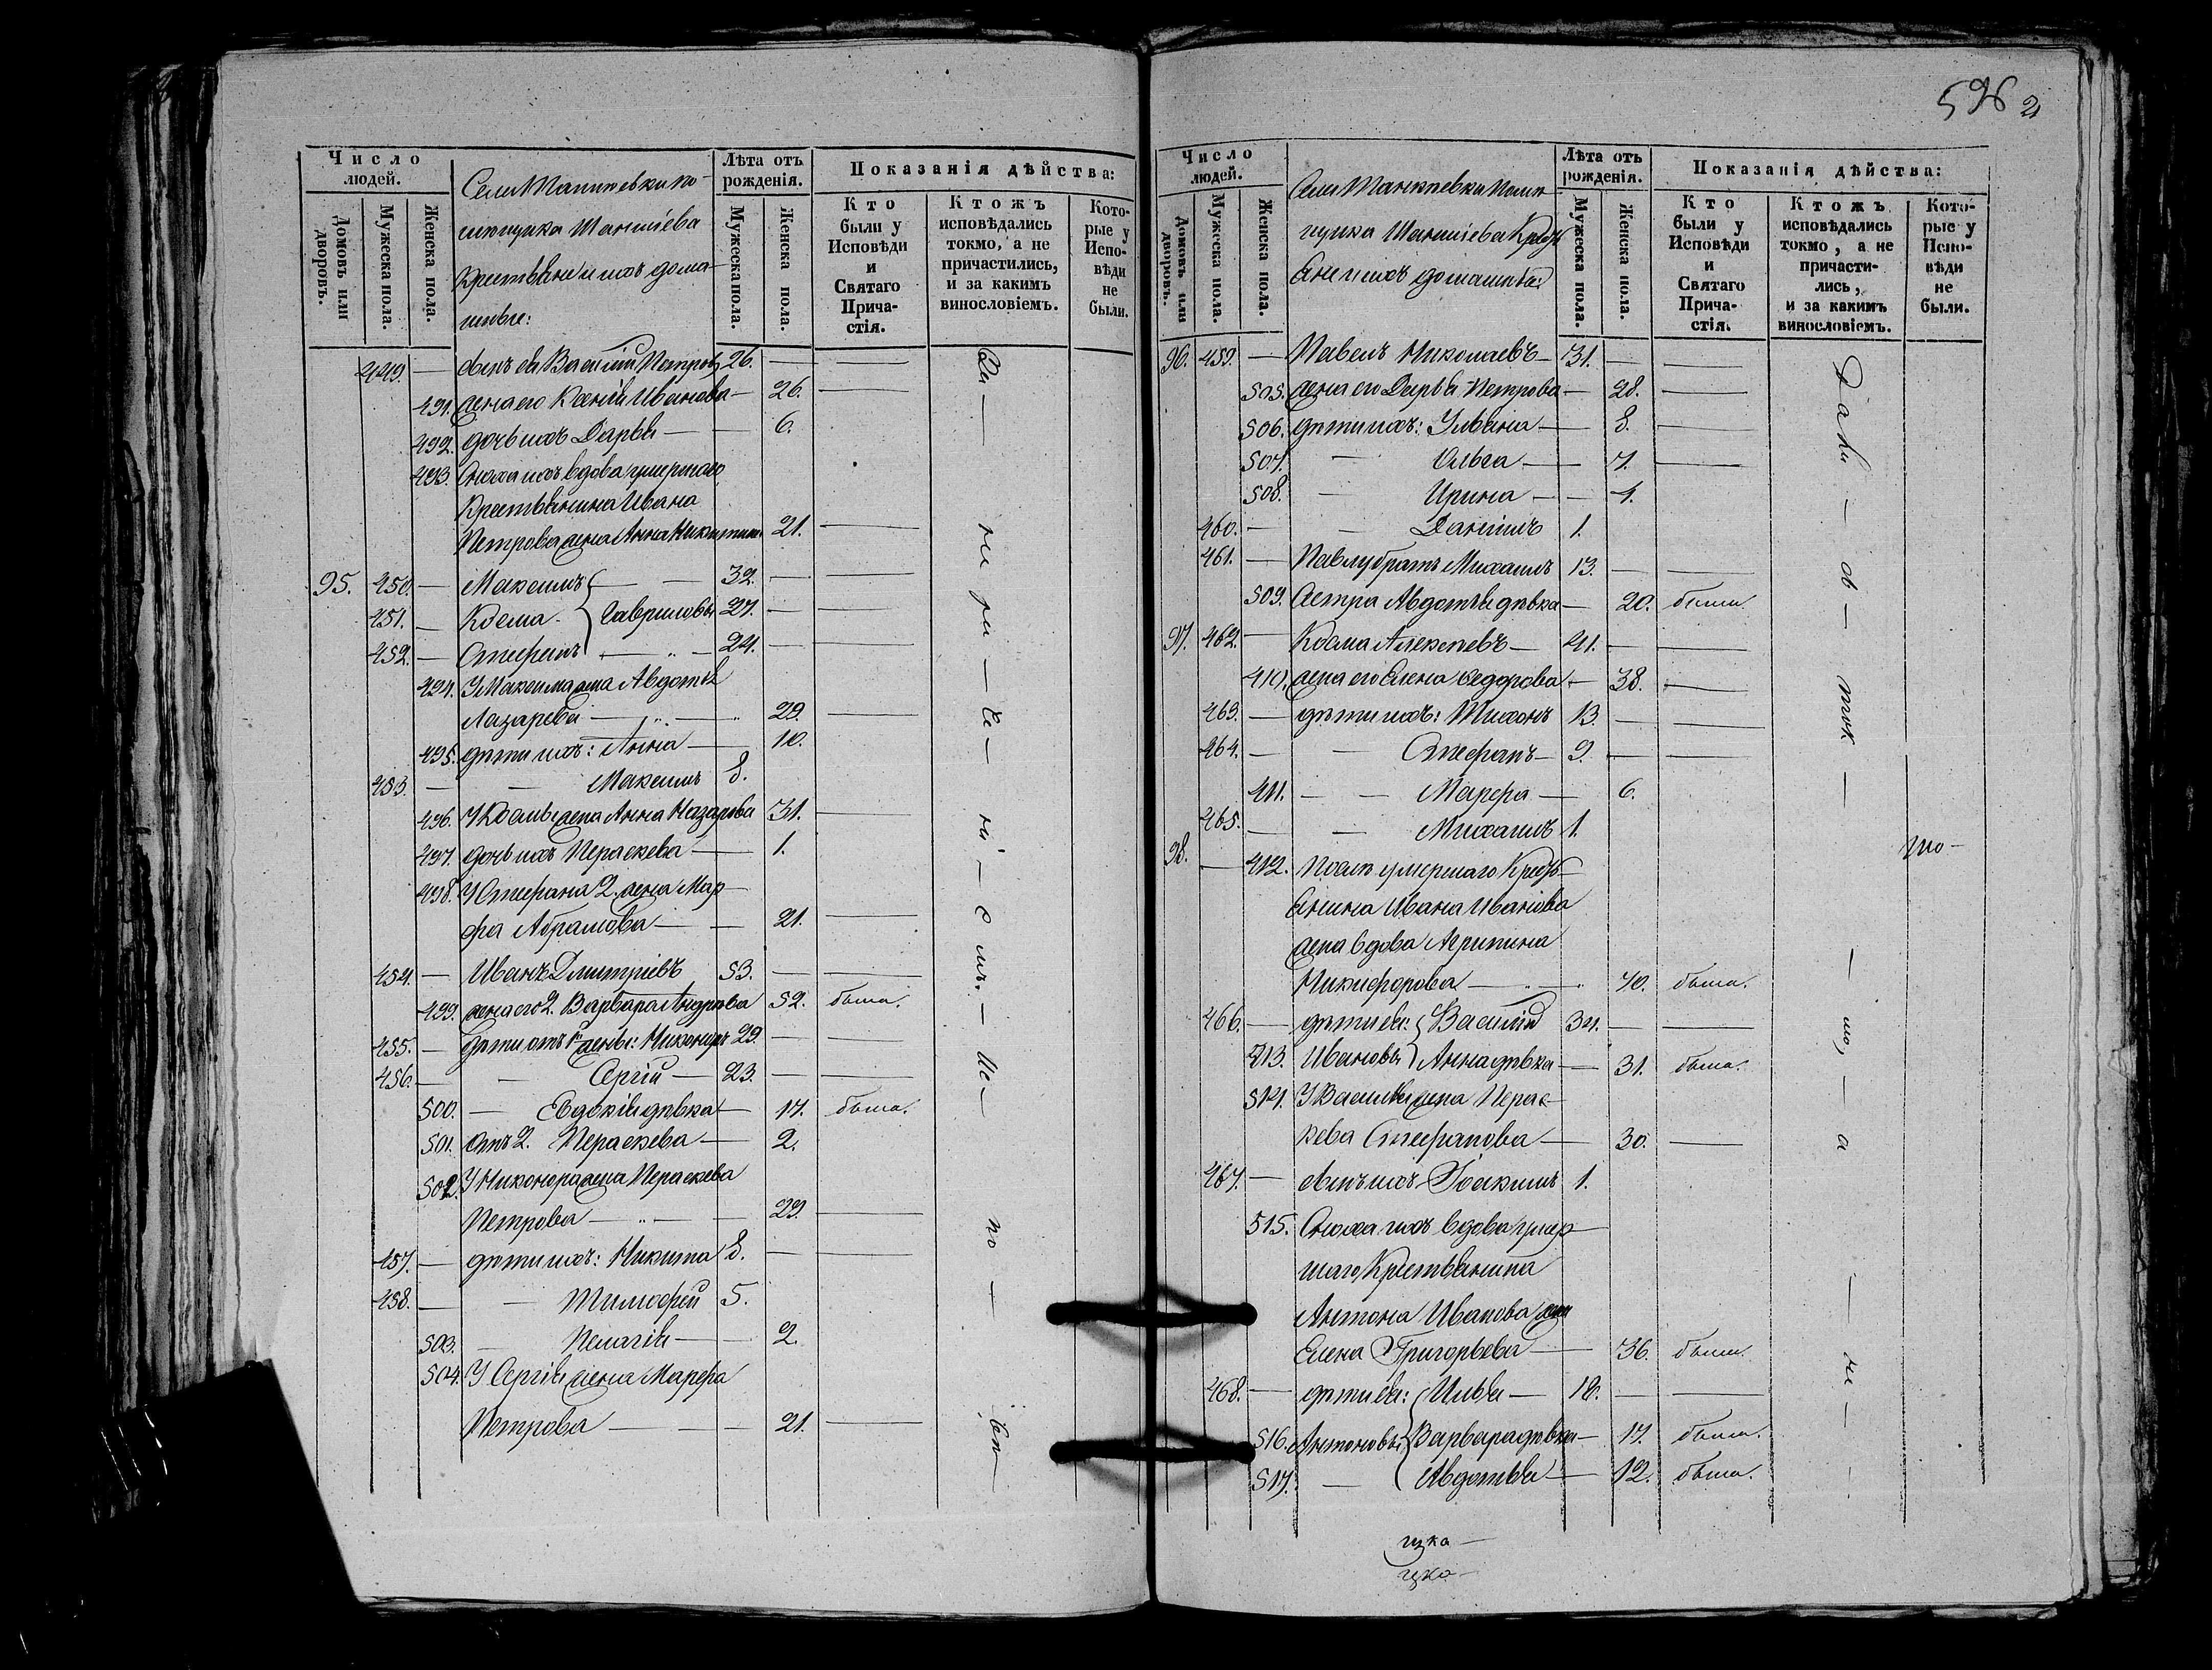 596
Число людей.
Домовъ или дворовъ.
Мужеска пола.
Женска пола.
Крестьяне и ихъ дома-
шнѣе:
Лѣта отъ рожденія.
Мужеска пола.
Женска пола.
Показанія дѣйства:
Кто были у Исповѣди и Святаго Причастія.
Ктожъ исповѣдались токмо, а не причастились, и за какимъ винословіемъ.
Которые у Исповѣди не были.
449. — сынъ ея Василій Петровъ 26. —
491. жена его Ксенія Иванова — 26. —
492. дочь ихъ Дарья — — 6.
493. Сноха ихъ вдова умершаго
Крестьянина Ивана
Петрова жена Анна Никитина 21. —
95. 450. — Максимъ — 32. — —
451. — Косма Гавриловы 27. — —
452. — Стефанъ — 24. — —
494. У Максима жена Авдотья
Лазарева — 29. —
495. дѣти ихъ: Анна — 10.
453. — — Максимъ 8.
496. У Космы жена Анна Назарова 31. —
497. дочь ихъ Параскева — 1.
498. У Стефана 2. жена Мар-
фа Абрамова — — 21. —
454. — Иванъ Дмитріевъ 53. — —
499. жена его 2. Варвара 52. была.
455. — Дѣти отъ 1 жены: Никоноръ 29. — —
456. — — Сергій — 23. — —
500. — Евдокія дѣвка — 17. была.
501. отъ 2. Параскева — 2.
502. У Никонора жена Параскева
Петрова — — 29. —
457. — дѣти ихъ: Никита 8. — —
458. — — Тимофей 5.
503. — Пелагія — 2.
504. У Сергія жена Марфа
Петрова — — 21. —
Число людей.
Домовъ или дворовъ.
Мужеска пола.
Женска пола.
Лѣта отъ рожденія.
Мужеска пола.
Женска пола.
Показанія дѣйства:
Кто были у Исповѣди и Святаго Причастія.
Ктожъ исповѣдались токмо, а не причастились, и за какимъ винословіемъ.
Которые у Исповѣди не были.
96. 459. — Павелъ Николаевъ — 31. — —
505. жена его Дарья Петрова — 28. —
506. дѣти ихъ: Ульяна — 8. —
507. — Ольга — 7. —
508. — Ирина — 4.
460. — — Даніилъ 1.
461. — Павлу братъ Михаилъ 13. — —
509. Сестра Авдотья дѣвка — 20. была.
97. 462. — Косма Алексѣевъ — 41. — —
410. жена его Елена Федорова — 38. —
463. — дѣти ихъ: Тихонъ 13. — —
464. — — Стефанъ — 9. — —
411. — — Марфа — 6.
465. — — Михаилъ 1.
98. — 412. Послѣ умершаго Кресть-
янина Ивана Иванова
жена вдова Агрипина
Никифорова — 70. была.
466. — дѣти ея: Василій 34. — —
513. Ивановы Анна дѣвка — 31. была.
514. У Василія жена Парас-
кева Стефанова — 30. —
467. — сынъ ихъ Іоакимъ 1.
515. Сноха ихъ вдова умер-
шаго Крестьянина
Антона Иванова жена
Елена Григорьева — 36. была.
468. — дѣти ея: Илья — 18. — —
516. Антоновы Варвара дѣвка — 17. была.
517. — Авдотья — 12. была.